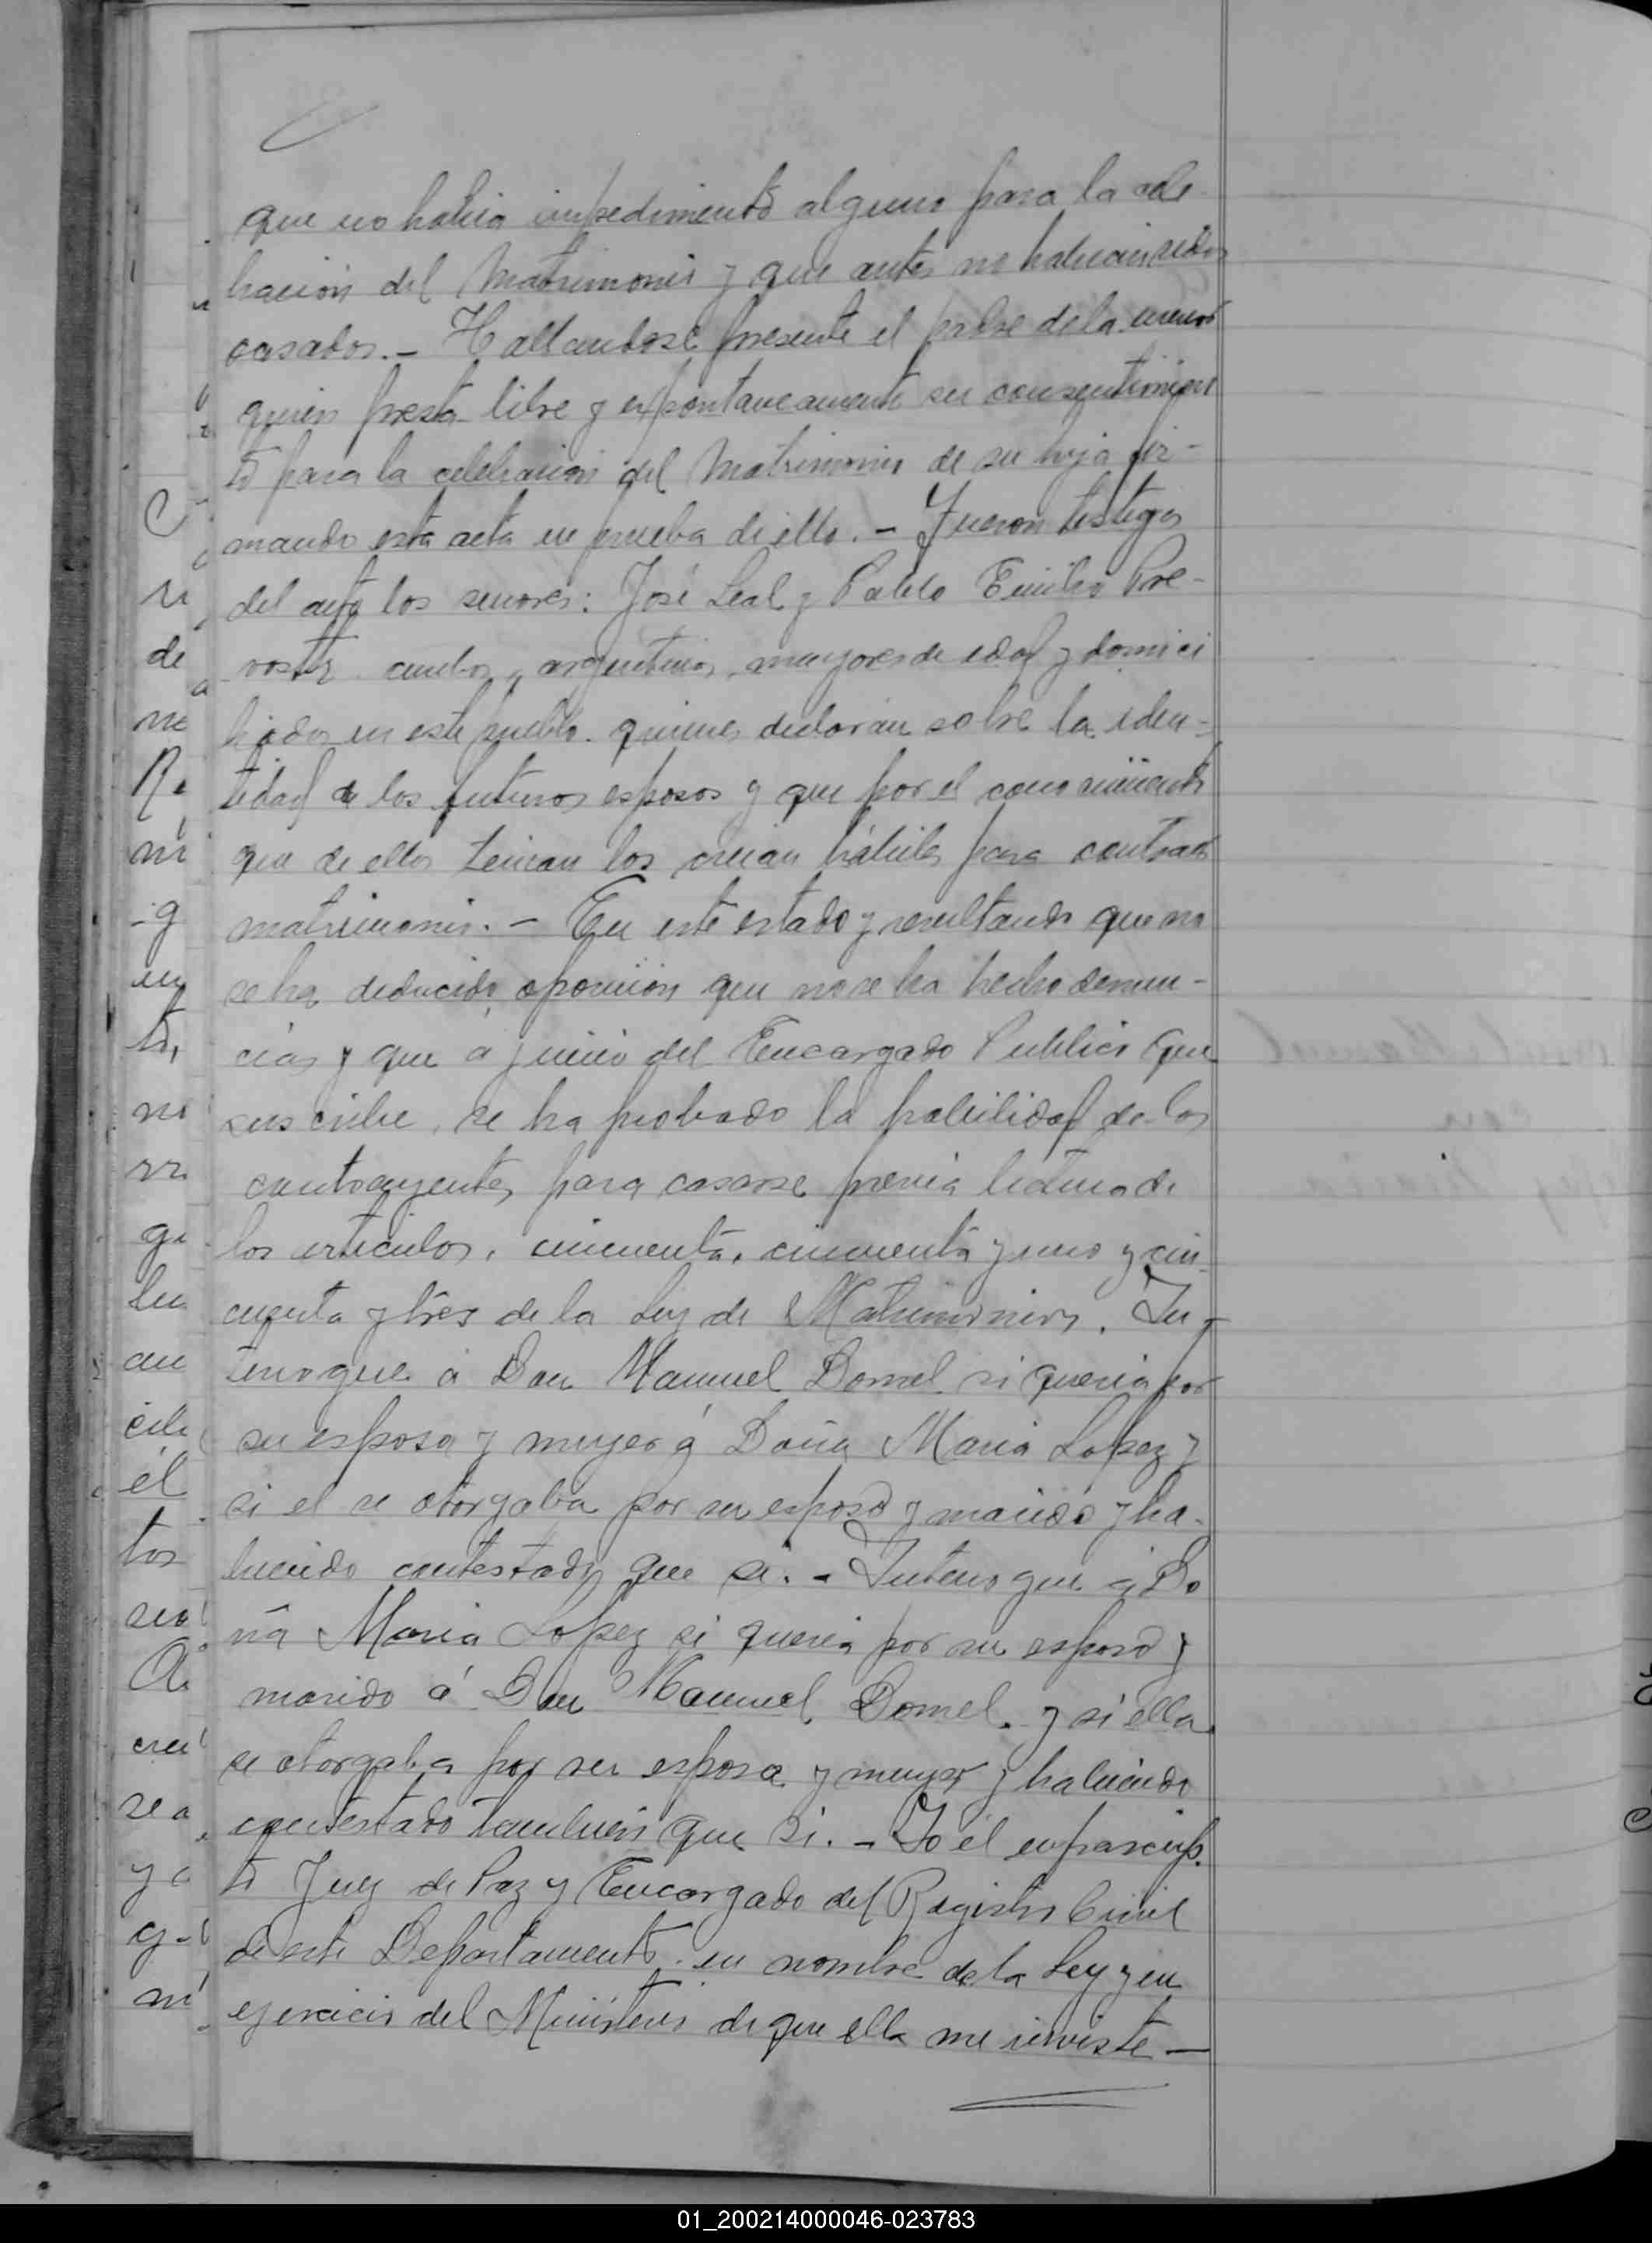 que no habia impedimento alguno para la cele-
bracion del Matrimonio y que antes no habian sidos
casados.- Hallandose presente el padre de la menor
quien presta libre y expontaneamente su consentimien
to para la celebracion del Matrimonio de su hija fir-
mando esta acta en prueba de ello.- Fueron testigos
del acto los señores: José Leal y Pablo Emilio Pre-
vostz ambos, argentinos, mayores de edad y domici
liados en este pueblo. quienes declaran sobre la iden-
tidad de los futuros esposos y que por el conocimiento
que de ellos tenian los creian hábiles para contraer
matrimonio.- En este estado y resultando que no
se ha deducido oposicion que no se ha hecho denun-
cias y que á juicio del Encargado Publico que
suscribe, se ha probado la habilidad de los
contrayentes, para casarse previa lectura de
los articulos, cincuenta, cincuenta y uno y cin-
cuenta y tres de la Ley de Matrimonios. In-
terrogue á Don Manuel Domel si queria por
su esposa y mujer á Doña Maria Lopez y
si el se otorgaba por su esposo y marido y ha-
biendo contestado que si.- Interrogue á Do
ña Maria Lopez si queria por su esposo y
marido á Don Manuel Domel. y si ella
se otorgaba por su esposa y mujer y habiendo
contestado tambien que si.- Yo el infrascrip-
to Juez de Paz y Encargado del Registro Civil
de este Departamento. en nombre de la Ley y en
ejercicio del Ministerio de que ella me inviste—
01_200214000046-023783